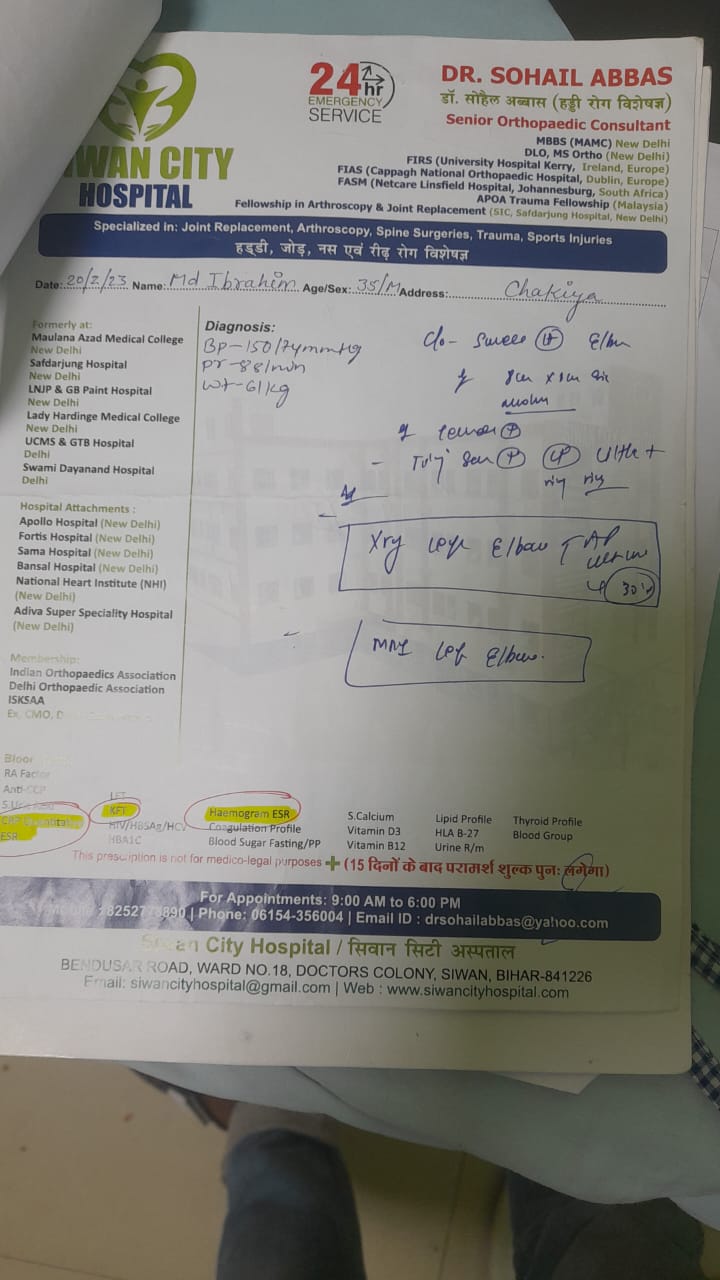 24 hr
EMERGENCY
SERVICE
DR. SOHAIL ABBAS
डॉ. सोहैल अब्बास (हड्डी रोग विशेषज्ञ)
Senior Orthopaedic Consultant
MBBS (MAMC) New Delhi
DLO, MS Ortho (New Delhi)
FIRS (University Hospital Kerry, Ireland, Europe)
FIAS (Cappagh National Orthopaedic Hospital, Dublin, Europe)
FASM (Netcare Linsfield Hospital, Johannesburg, South Africa)
APOA Trauma Fellowship (Malaysia)
Fellowship in Arthroscopy & Joint Replacement (SIC, Safdarjung Hospital, New Delhi)
IWAN CITY
HOSPITAL
Specialized in: Joint Replacement, Arthroscopy, Spine Surgeries, Trauma, Sports Injuries
हड्डी, जोड़, नस एवं रीढ़ रोग विशेषज्ञ
Date: 20/2/23 Name: Md Ibrahim Age/Sex: 35/M Address: Chakiya
Formerly at:
Maulana Azad Medical College
New Delhi
Safdarjung Hospital
New Delhi
LNJP & GB Paint Hospital
New Delhi
Lady Hardinge Medical College
New Delhi
UCMS & GTB Hospital
Delhi
Swami Dayanand Hospital
Delhi
Hospital Attachments :
Apollo Hospital (New Delhi)
Fortis Hospital (New Delhi)
Sama Hospital (New Delhi)
Bansal Hospital (New Delhi)
National Heart Institute (NHI)
(New Delhi)
Adiva Super Speciality Hospital
(New Delhi)
Membership:
Indian Orthopaedics Association
Delhi Orthopaedic Association
ISKSAA
Ex. CMO,
Diagnosis:
BP-150/74mmHg
PR-88/min
Wt-61kg
c/o -
Xray Left Elbow AP
30
MRI Left Elbow.
RA Factor
Anti-CCP
ESR
LFT
KFT
HIV/HBSAg/HCV
HBA1C
Haemogram ESR
Coagulation Profile
Blood Sugar Fasting/PP
S.Calcium
Vitamin D3
Vitamin B12
Lipid Profile
HLA B-27
Urine R/m
Thyroid Profile
Blood Group
This prescription is not for medico-legal purposes + (15 दिनों के बाद परामर्श शुल्क पुनः लगेगा)
For Appointments: 9:00 AM to 6:00 PM
Phone: 06154-356004 | Email ID : drsohailabbas@yahoo.com
Siwan City Hospital / सिवान सिटी अस्पताल
BENDUSAR ROAD, WARD NO.18, DOCTORS COLONY, SIWAN, BIHAR-841226
Email: siwancityhospital@gmail.com | Web : www.siwancityhospital.com